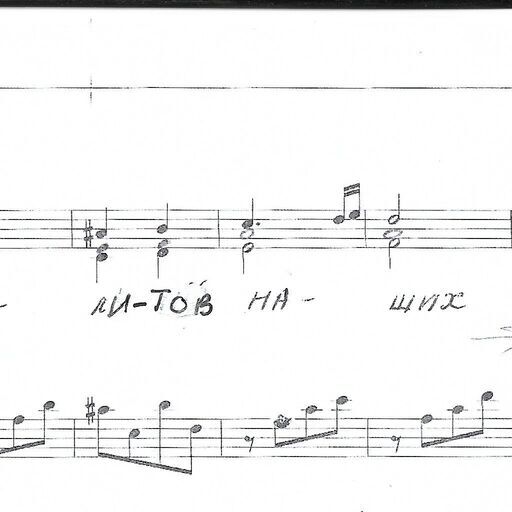 - ЛИ-ТОВ НА- ЩИХ